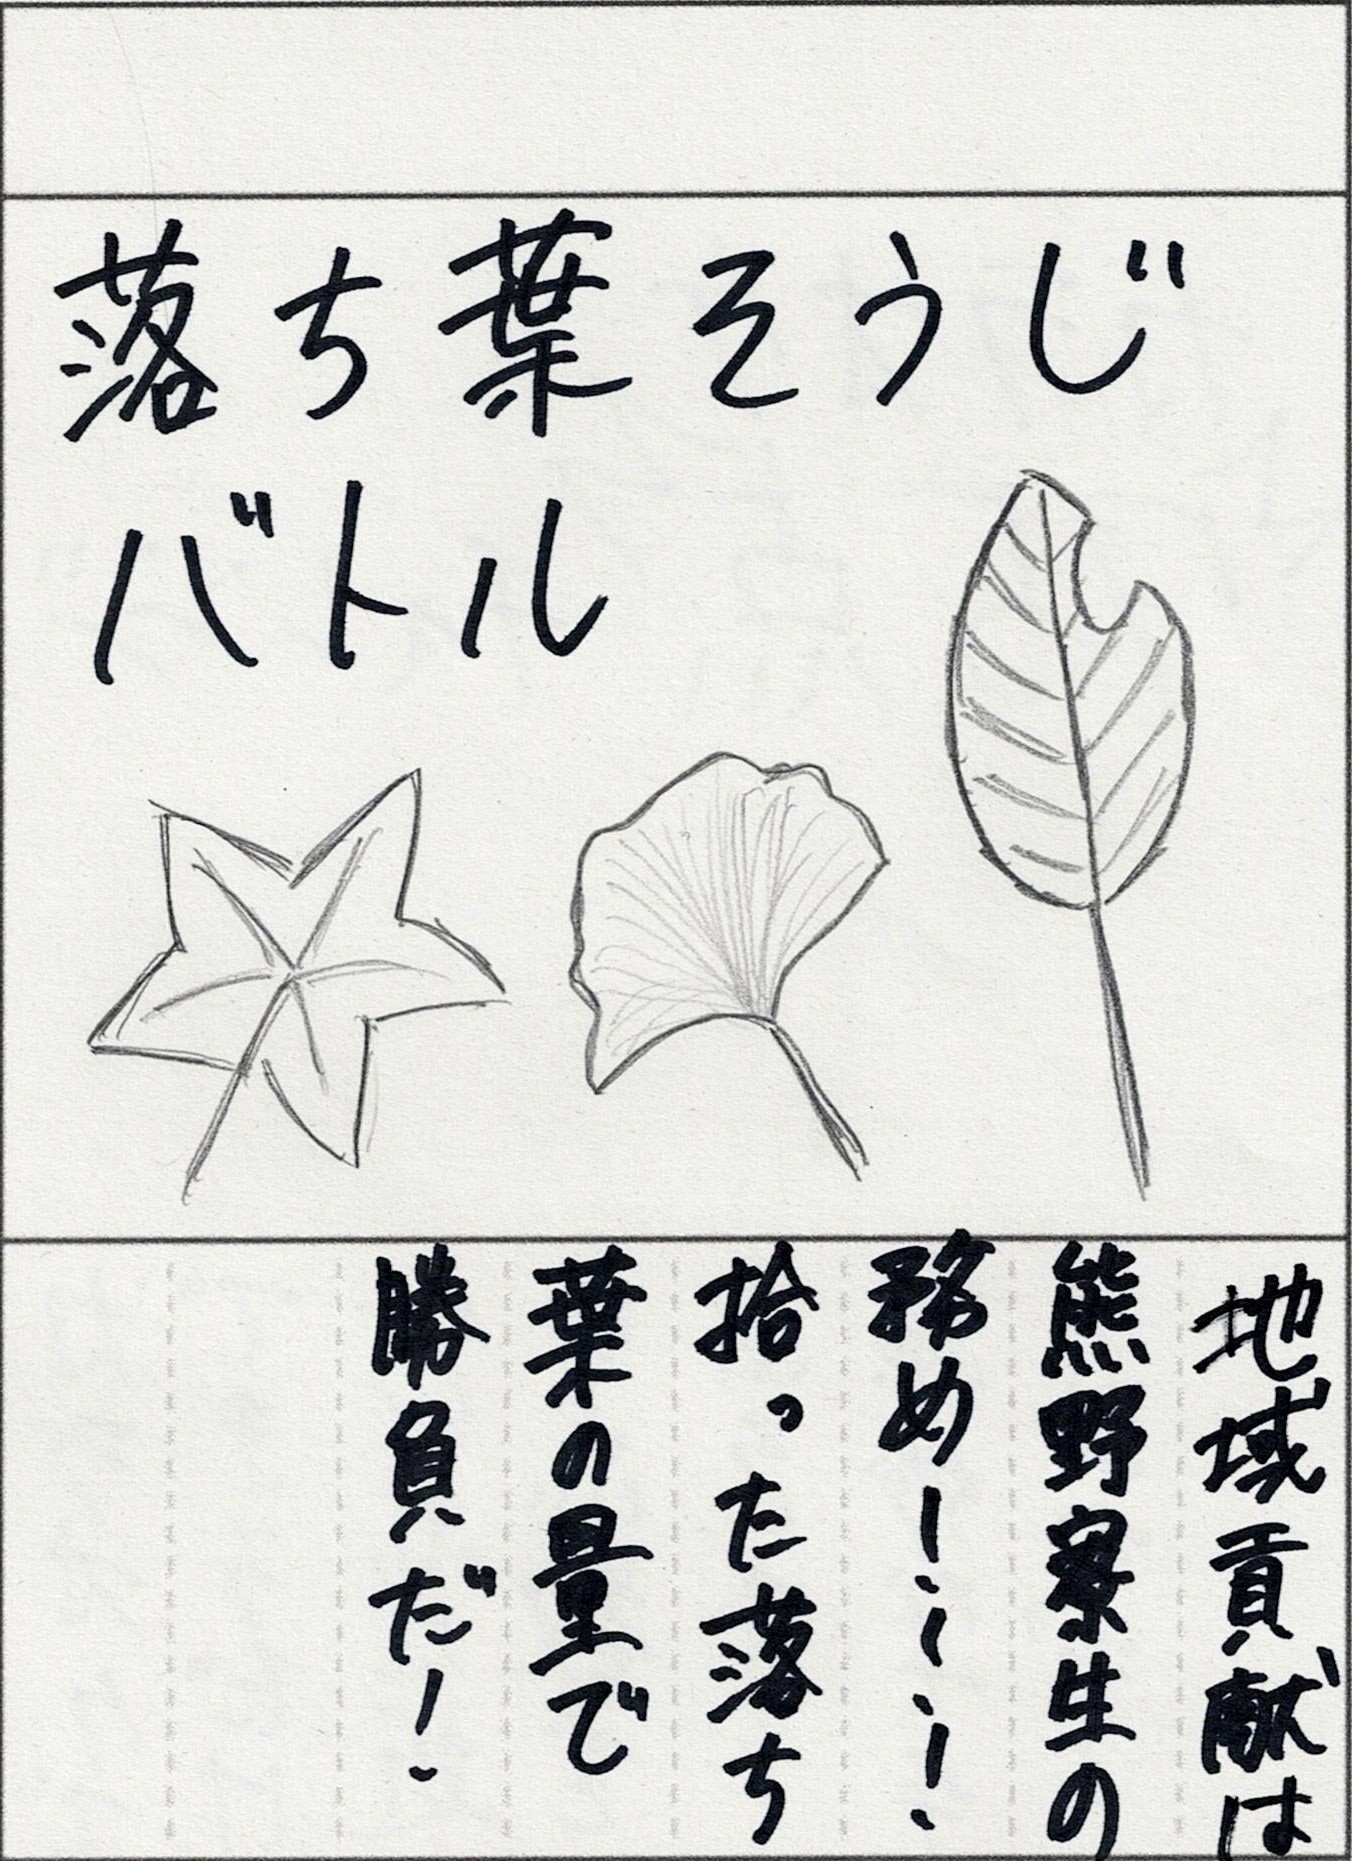 落ち葉そうじ
バトル
地域貢献は
熊野寮生の
務め！！！
拾った落ち
葉の量で
勝負だ！